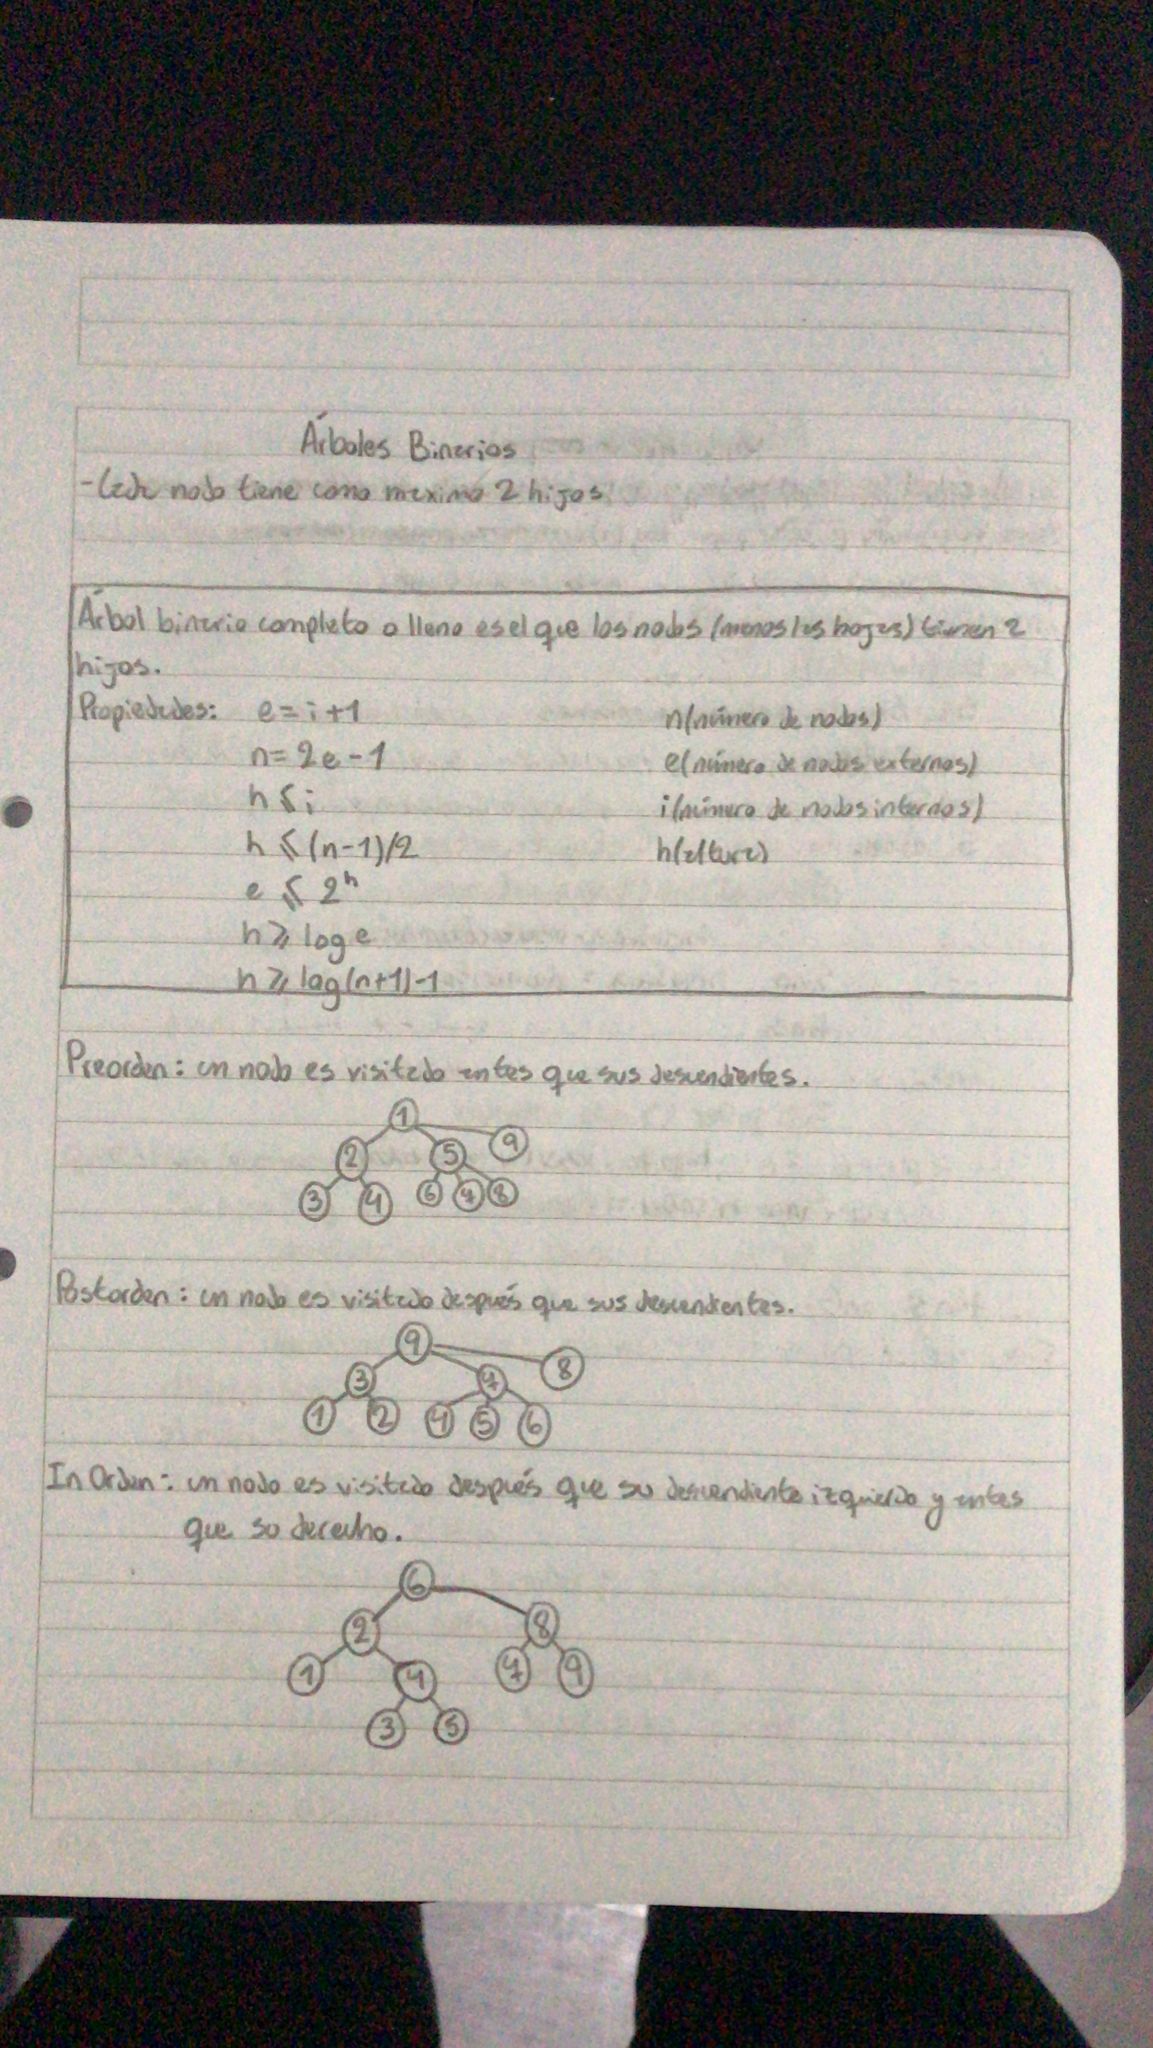 Árboles Binarios
- Cada nodo tiene como maximo 2 hijos
Árbol binario completo o lleno es el que los nodos (menos las hojas) tienen 2
hijos.
Propiedades: e = i + 1 n(número de nodos)
n = 2e - 1 e(número de nodos externos)
h ≤ i i(número de nodos internos)
h ≤ (n-1)/2 h(altura)
e ≤ 2^h
h ≥ log e
h ≥ log(n+1)-1
Preorden: un nodo es visitado antes que sus descendientes.
1
2 5 9
3 4 6 7 8
Postorden: un nodo es visitado después que sus descendientes.
9
3 7 8
1 2 4 5 6
In Orden: un nodo es visitado después que su descendiente izquierdo y antes
que su derecho.
6
2 8
1 4 7 9
3 5